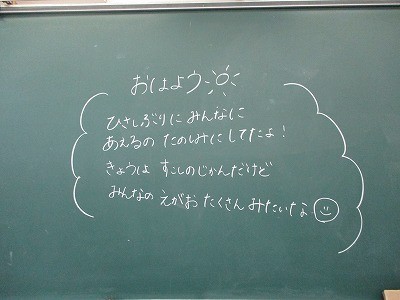 おはよう
ひさしぶりに みんなに
あえるの たのしみに してたよ！
きょうは すこしの じかんだけど
みんなの えがお たくさん みたいな